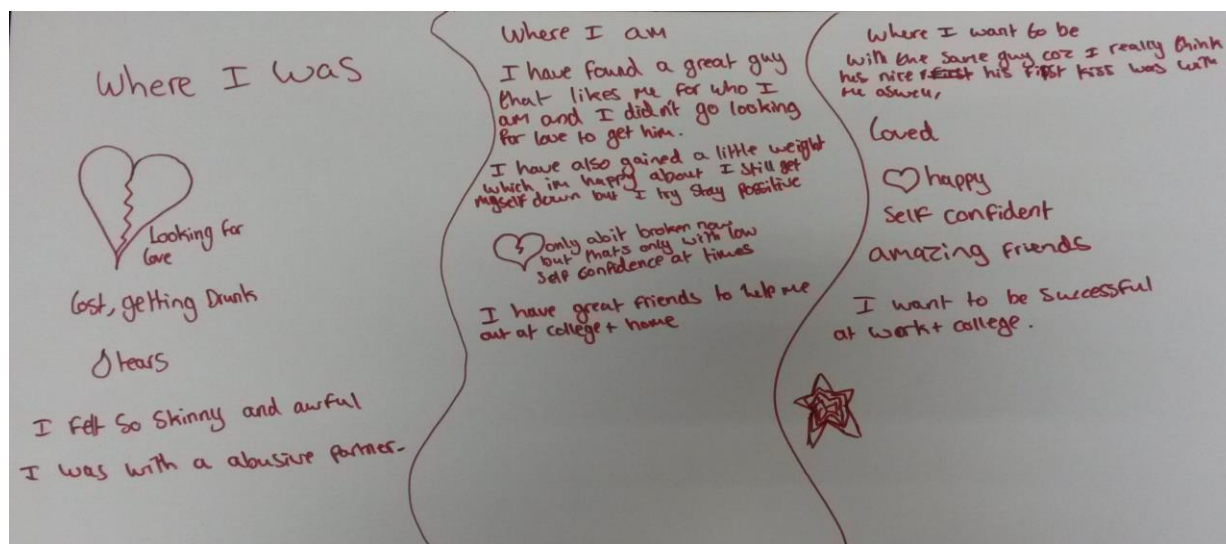 Where I was
Looking for
love
Lost, getting Drunk
tears
I felt so skinny and awful
I was with a abusive partner.
Where I am
I have found a great guy
that likes me for who I
am and I didn't go looking
for love to get him.
I have also gained a little weight
which im happy about I still get
myself down but I try stay possitive
only abit broken now
but thats only with low
self confidence at times
I have great friends to help me
out at college + home
Where I want to be
with the same guy coz I really think
his nice his first kiss was with
me aswell,
Loved
happy
self confident
amazing friends
I want to be successful
at work + college.